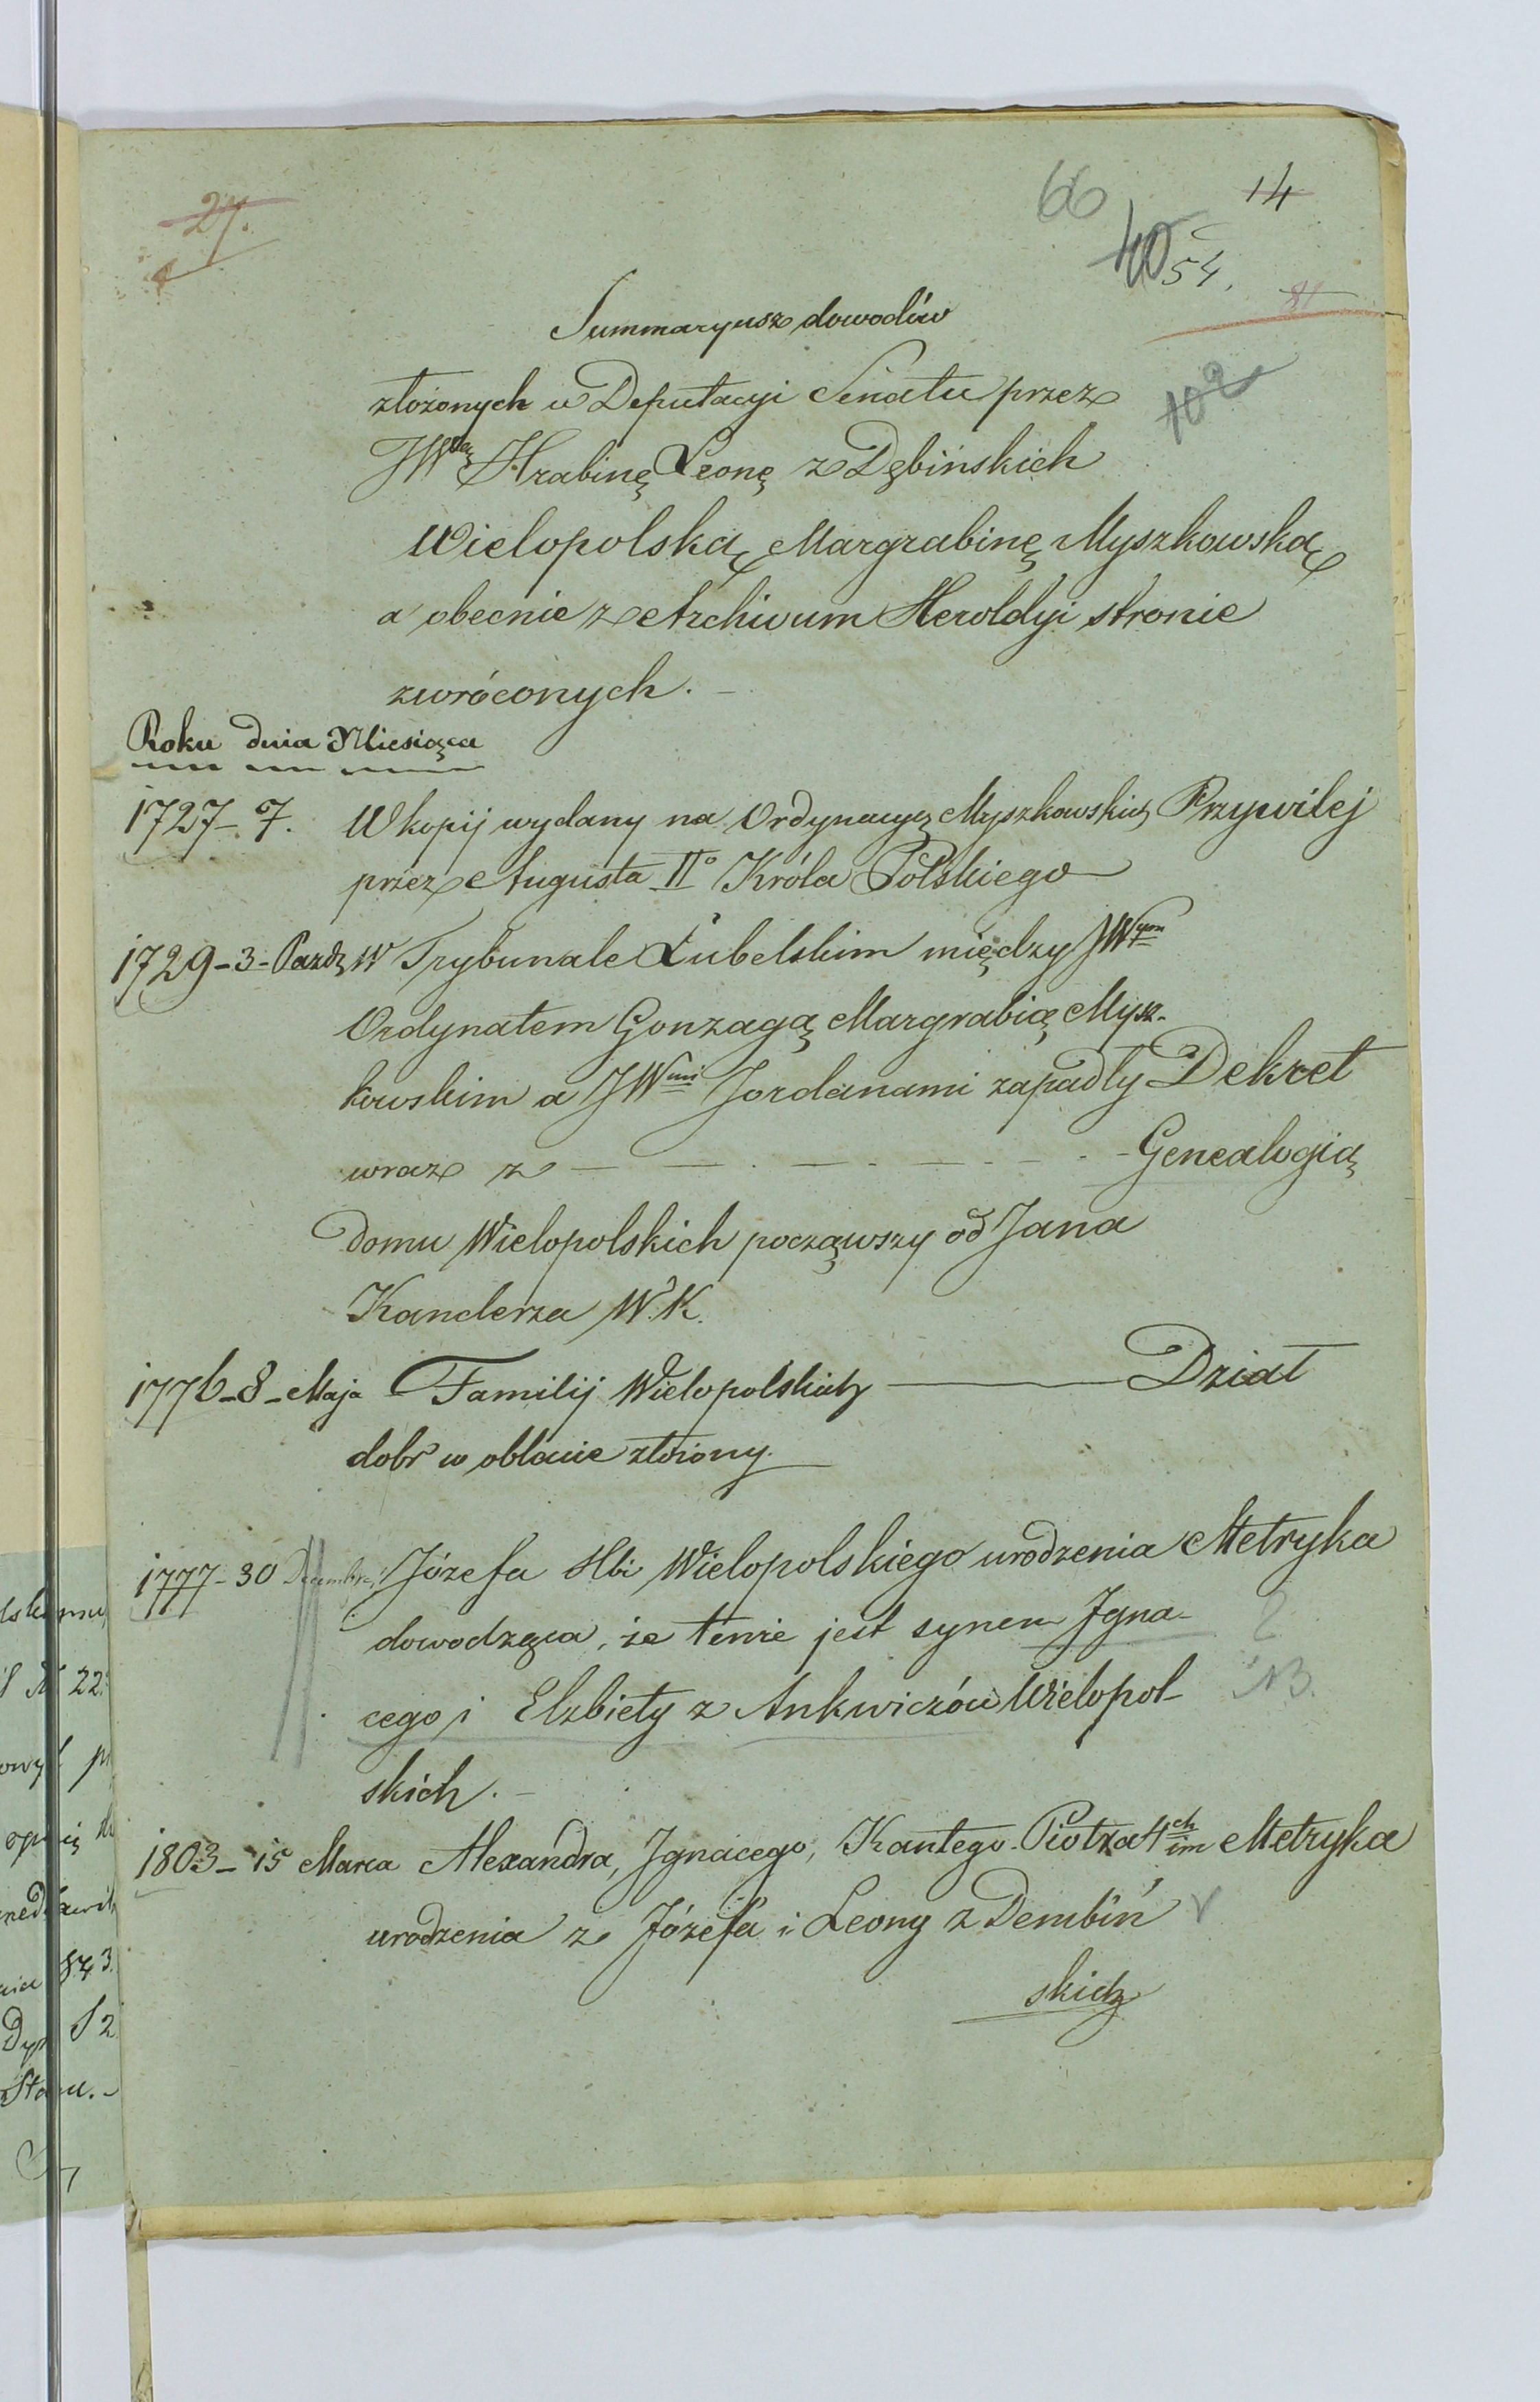 27.
66
14
54.
Summaryusz dowodów
złożonych w Deputacyi Senatu przez
JWą Hrabinę Leonę z Dębińskich
Wielopolską Margrabinę Myszkowską
a obecnie z Archivum Heroldyi stronie
zwróconych. -
Roku dnia Miesiąca
1727 - 7. W kopij wydany na Ordynacyę Myszkowskich Przywilej
przez Augusta II° Króla Polskiego
1729 - 3 - Pazdz W Trybunale Lubelskim między JWym
Ordynatem Gonzagą Margrabią Mysz-
kowskim a JWmi Jordanami zapadły Dekret
wraz z - - . - . - . - . - Genealogią
domu Wielopolskich począwszy od Jana
Kanclerza W. K.
1776 - 8 - Maja Familij Wielopolskich — Dział
dobr w oblacie złożony.
1777 - 30 Decembris Józefa Hbi Wielopolskiego urodzenia Metryka
dowodząca, że tenże jest synem Igna-
cego i Elzbiety z Ankwiczów Wielopol-
NB.
skich. -
1803 - 15 Marca Alexandra, Ignacego, Kantego Piotra 4ch im Metryka
urodzenia z Józefa i Leony z Dembiń
skich
22.